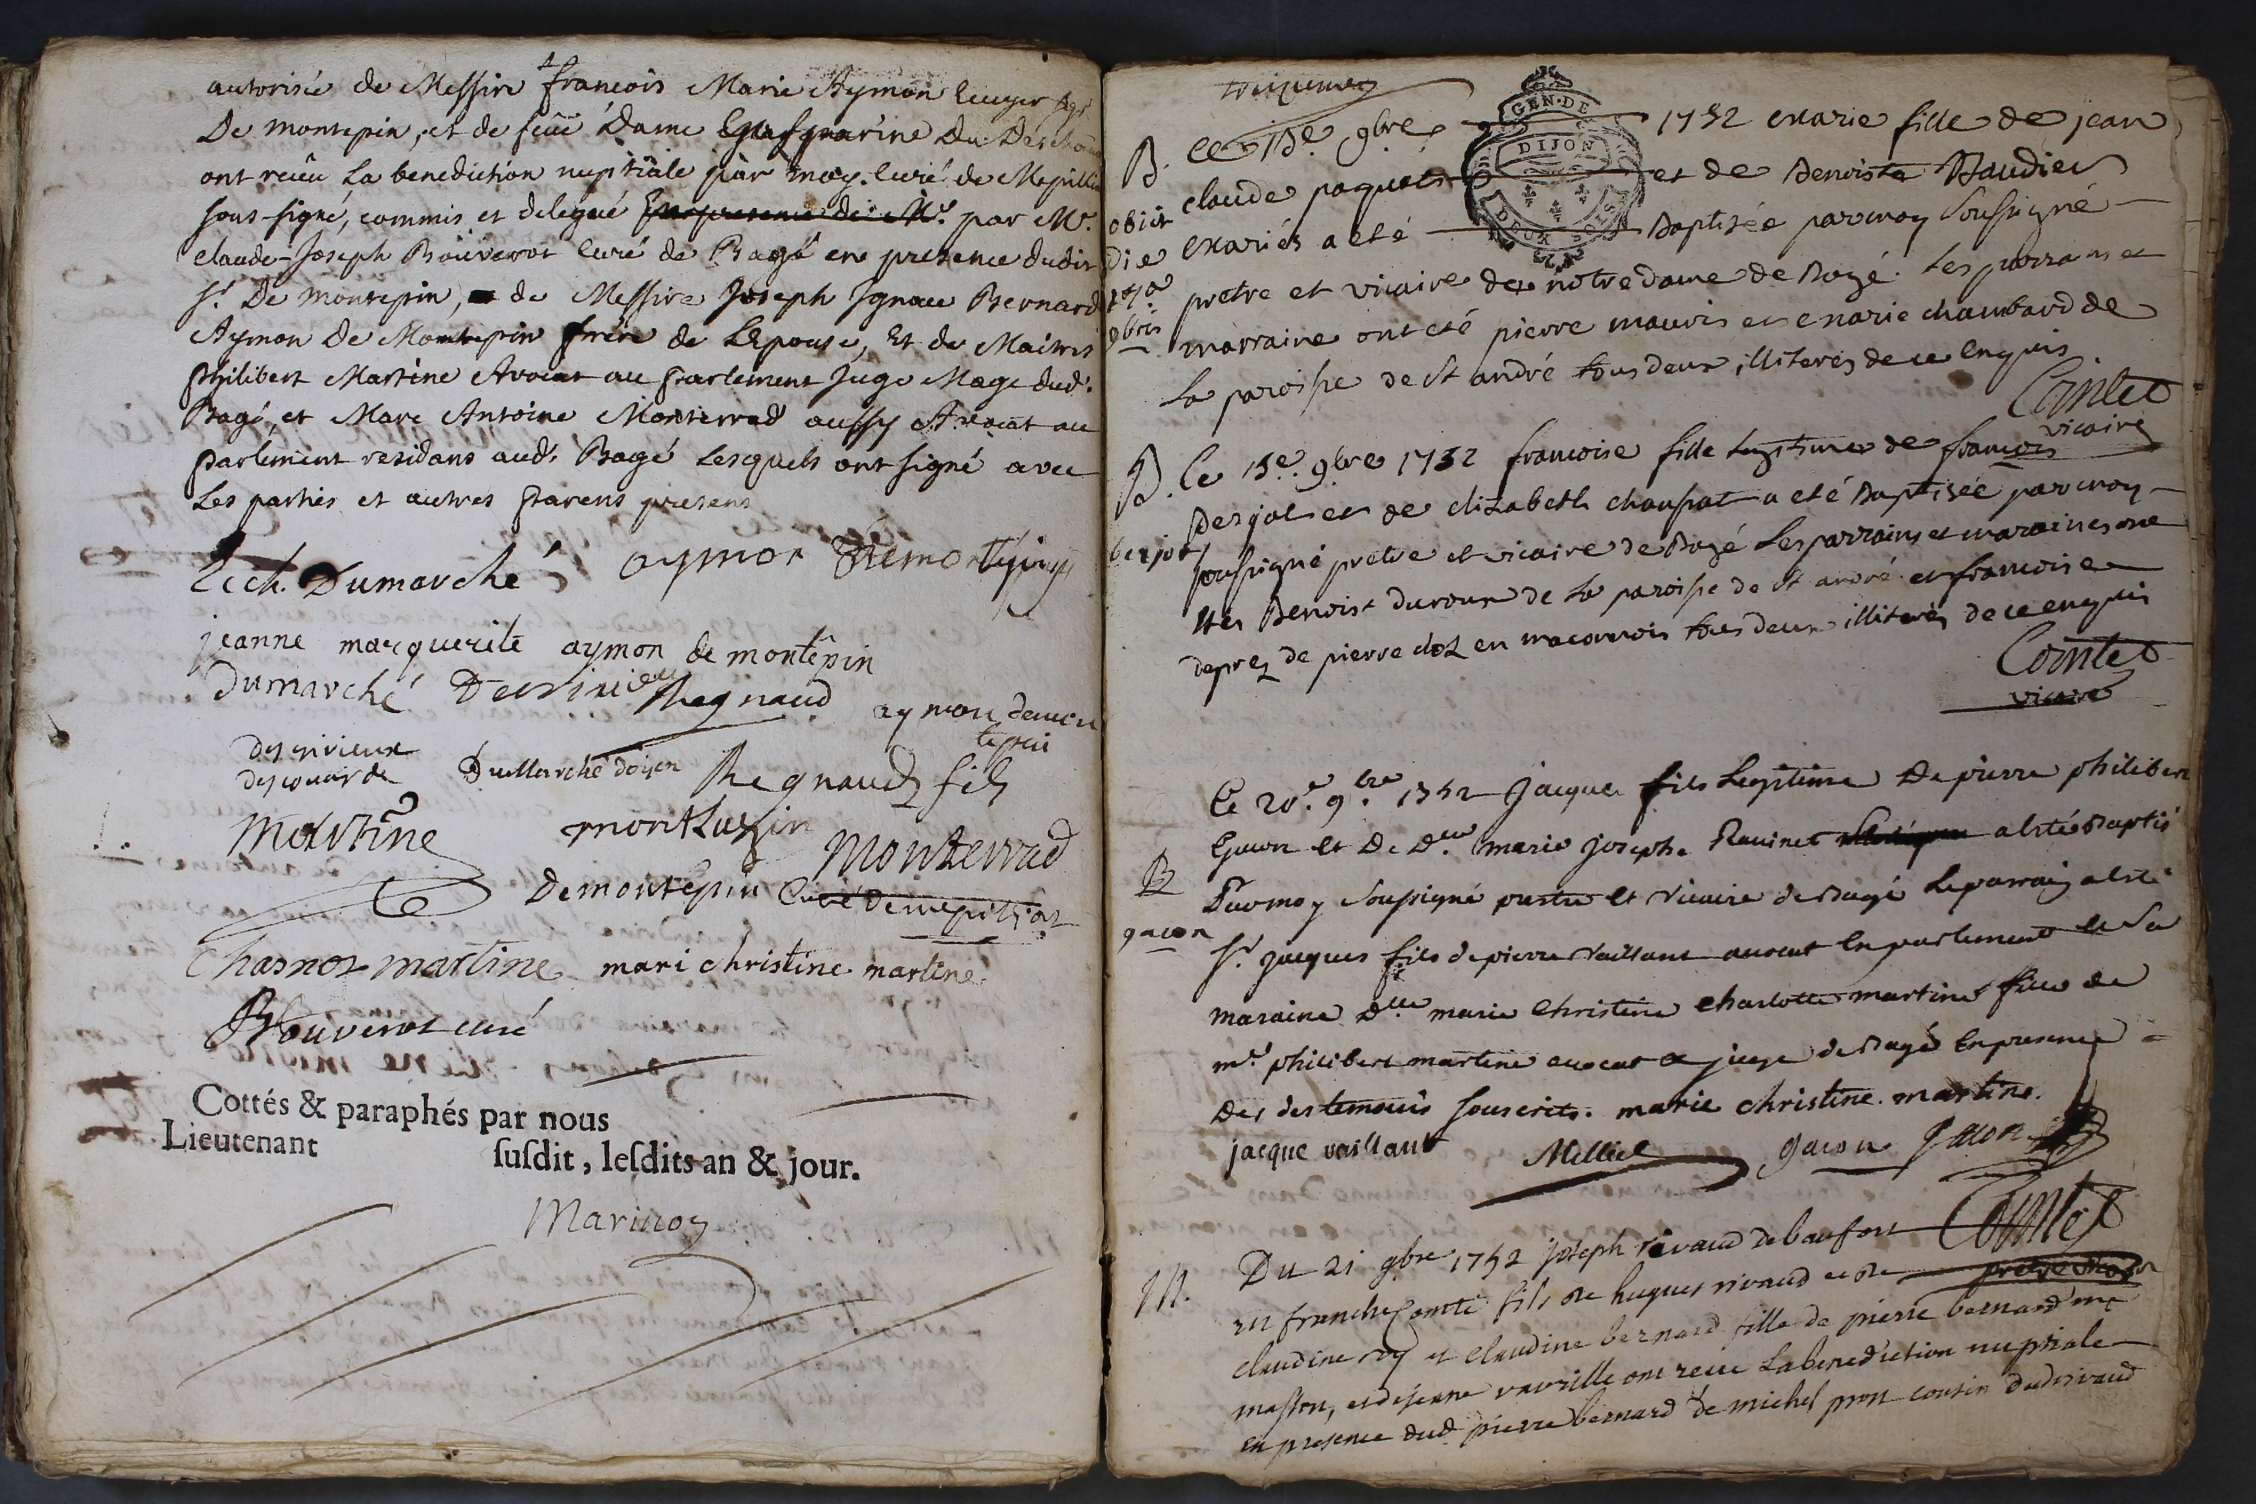 autorisée de Messire francois Marie Aymon Ecuyer sgr
De montepin, et de feüe Dame
ont reçu La benediction nuptiale par moy. Curé de Mepillia
sous-signé, commis et delegué En presence de Mr. par Mr.
Claude-Joseph Bouverot Curé de Bagé en presence dudit
Sr. De montepin, de Messire Joseph Ignace Bernard
Aymon De Montepin frere de L'Epouse, Et de Maitres
Philibert Martine Avocat au parlement Juge Mage dud.
Bagé, et Marc Antoine Monterrad aussy Avocat au
parlement residans aud. Bagé Lesquels ont signé avec
Les parties et autres Parens presens
Dumarché aymon De montepin
jeanne marguerite aymon de montepin
Dumarché Regnaud aymon demon
tepin
descrivieux
descouarde DuMarché doyen Regnaud fils
Martine montluzin Monterrad
Demontepin Curé de mepilliat
Charnoz martine mari christine martine
Bouverot curé
Cottés & paraphés par nous
Lieutenant ſuſdit, leſdits an & jour.
GEN. DE
DIJON
DEUX SOLS
B. Ce 15e. 9bre. 1752 Marie fille de jean
claude paquet et de Benoiste Baudier
obiit Mariés a eté Baptisée par moy soussigné
die pretre et vicaire de notre dame de Bagé. Les parrain et
9bris marraine ont eté pierre mauris et marie chambard de
La paroisse de st andré tous deux illiterés de ce enquis
Comte
vicaire
B. Ce 15e. 9bre 1752 francoise fille Legitime de francois
Berjot et de elizabeth chaussat a eté Baptisée par moy
berjot soussigné pretre et vicaire de Bagé Les parrains et maraines ont
étés Benoist duroux de La paroisse de st andré et francoise
deprez de pierre cloz en maconnois tous deux illiterés de ce enquis
Comte
vicaire
Ce 20e. 9bre 1752 Jacque fils Legitime De pierre philibert
Gacon et De Dlle marie josephe Ravinet a été Baptisé
B Par moy Soussigné pretre et vicaire de Bagé Le parrain a eté
gacon Sr. jacques fils de pierre vaillant avocat En parlement et La
maraine Dlle marie Christine Charlotte martine fille de
me. philibert martine avocat et juge de Bagé En presence
Des des temoins souscrits. marie christine. martine.
jacque vaillant Milliet gacon Gacon
Comte
M. Du 21 9bre 1752 joseph rivaud de baufort
en franche Comté fils de hugues rivaud et de
claudine et claudine bernard fille de pierre bernard me
masson, et de jeanne vavrille ont reçue La benediction nuptiale
en presence dud pierre bernard de michel pron cousin dud rivaud